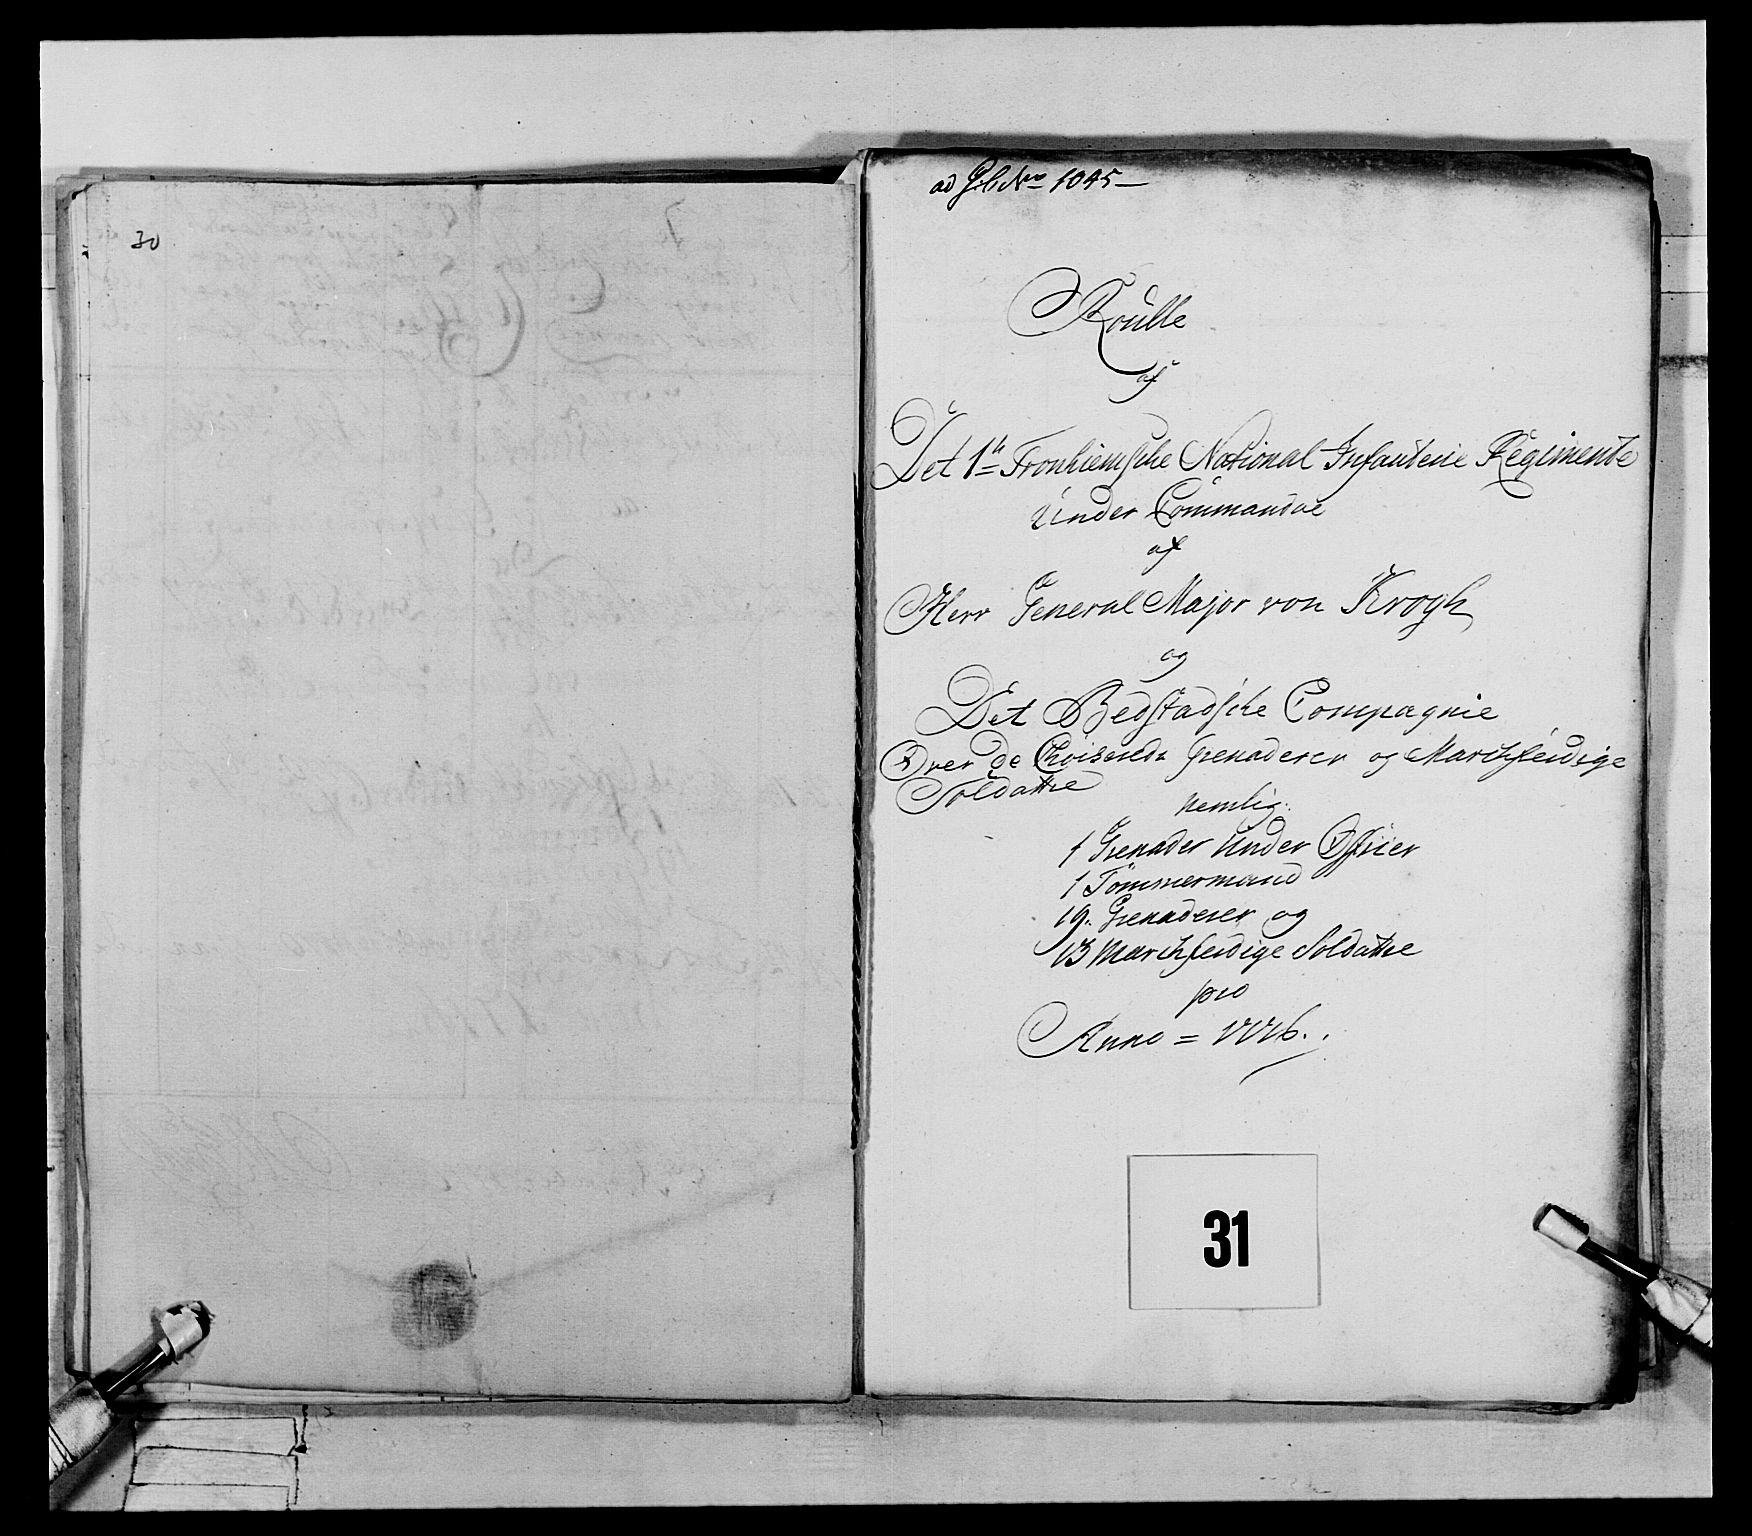 30
ad No 1045
Roulle
af
Det 1te Tronhiemske National Infanterie Regimente
Under Commandoe
af
Herr General Major von Krogh
og
Det Bedstadske Compagnie
Over de Choiserede Grenaderer og Marchferdige
Soldatter
nemlig:
1 Grenader Under Officier
1 Tömmermand
19. Grenaderer og
13 Marchferdige Soldatter
pro
Anno = 1776.
31